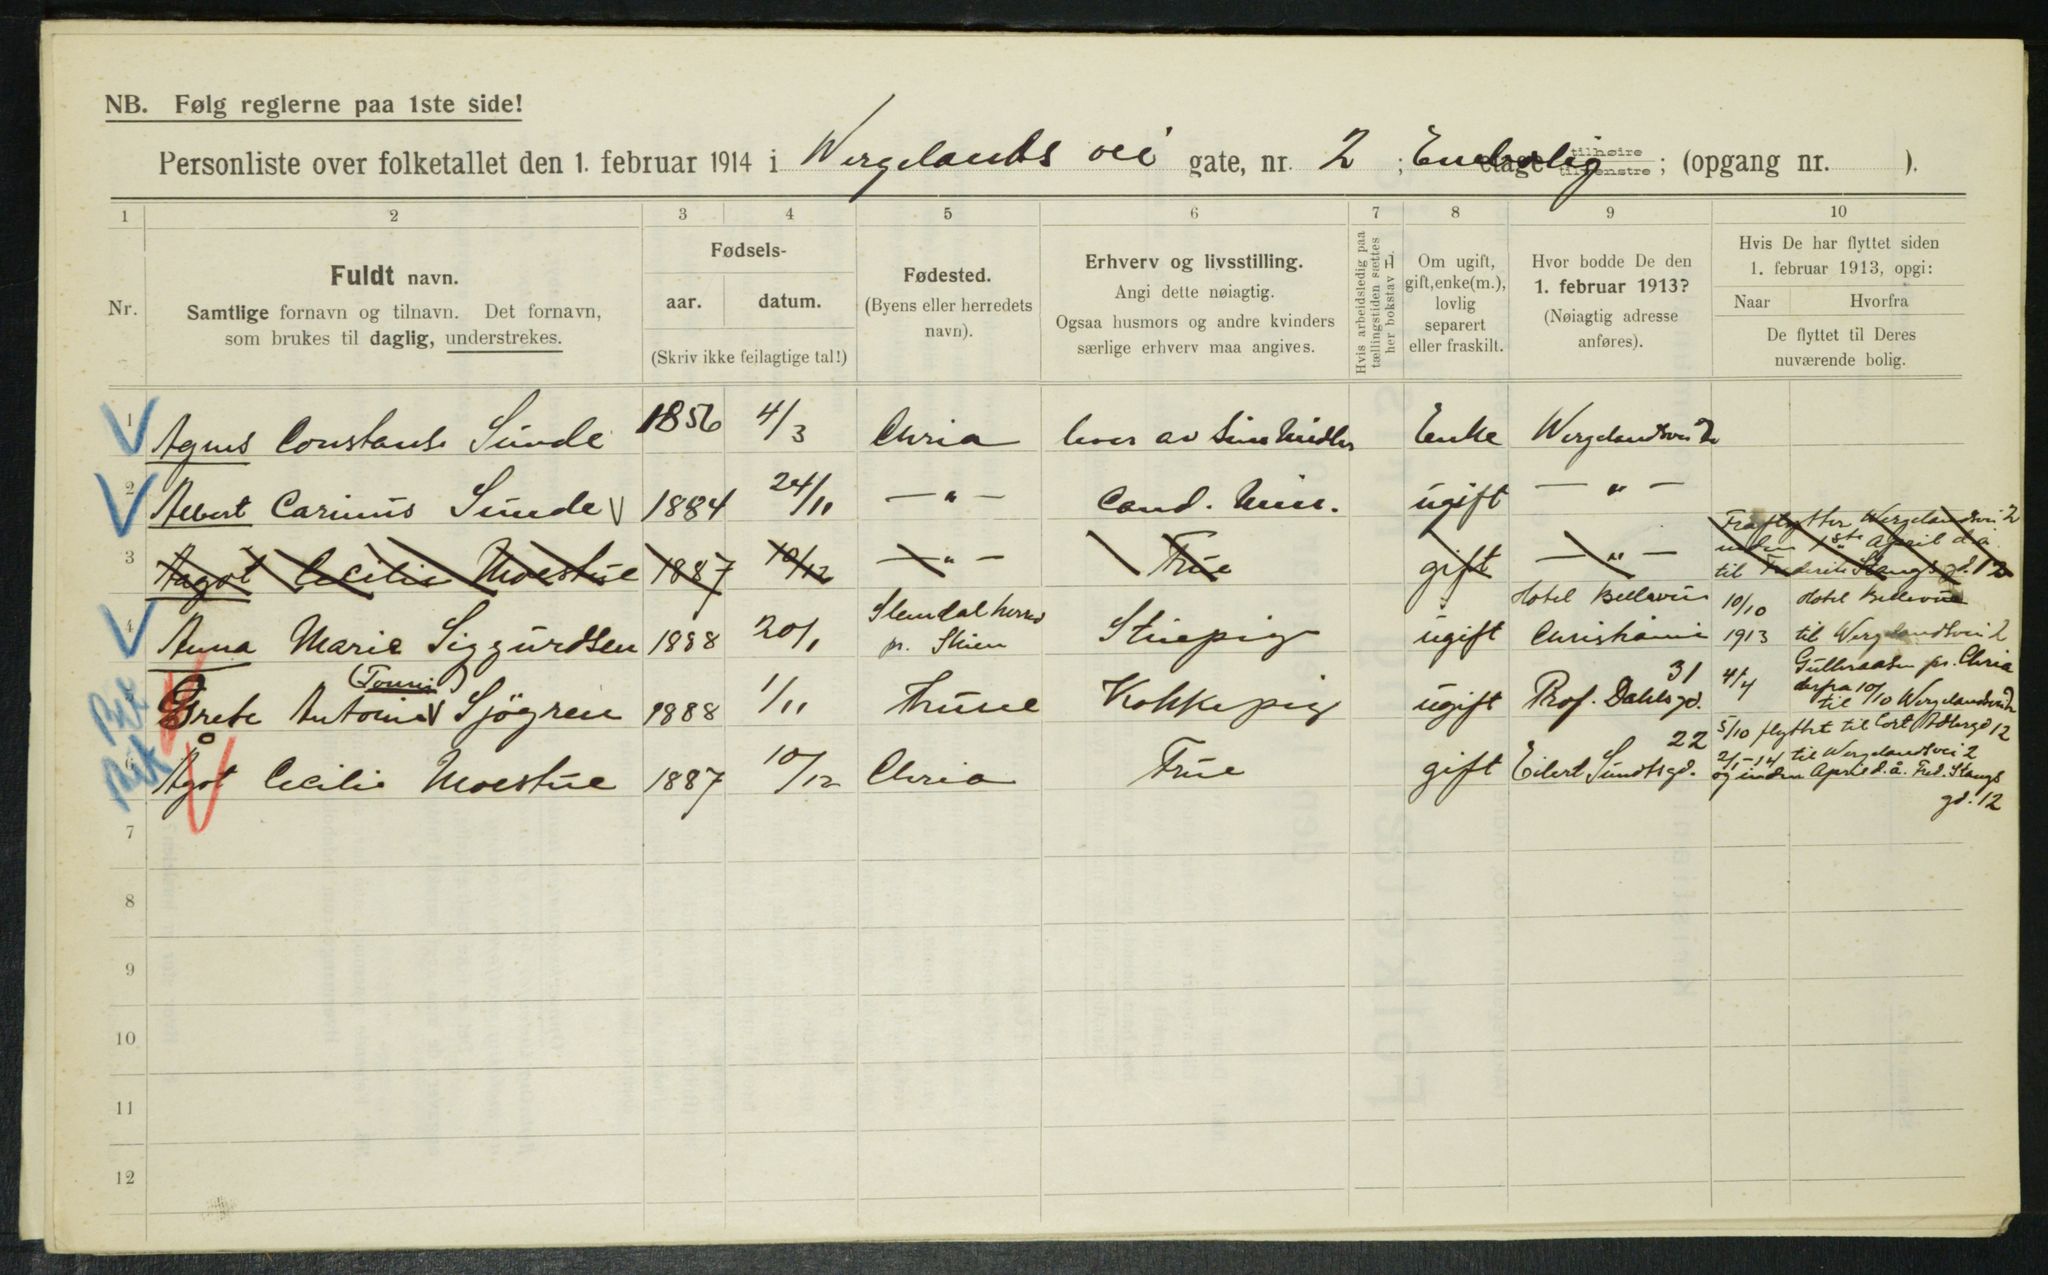 NB. Følg reglerne paa 1ste side!
Personliste over folketallet den 1. februar 1914 i Wergelands vei gate, nr. 2 ; Enebolig etage tilhøire tilvenstre ; (opgang nr. ).
1 2 3 4 5 6 7 8 9 10
Nr.
Fuldt navn.
Samtlige fornavn og tilnavn. Det fornavn,
som brukes til daglig, understrekes.
Fødsels-
aar. datum.
(Skriv ikke feilagtige tal!)
Fødested.
(Byens eller herredets
navn).
Erhverv og livsstilling.
Angi dette nøiagtig.
Ogsaa husmors og andre kvinders
særlige erhverv maa angives.
Hvis arbeidsledig paa
tællingstiden sættes
her bokstav L
Om ugift,
gift, enke(m.),
lovlig
separert
eller fraskilt.
Hvor bodde De den
1. februar 1913?
(Nøiagtig adresse
anføres).
Hvis De har flyttet siden
1. februar 1913, opgi:
Naar Hvorfra
De flyttet til Deres
nuværende bolig.
1 Agnes Constanse Sunde 1856 4/3 Chria lever av sine Midler Enke Wergelandsvei 2
2 Albert Carinus Sunde 1884 24/11 — " — Cand. Min. ugift — " —
3 Aagot Cecilie Moestue 1887 10/12 — " — Frue gift — " —
Fraflytter Wergelandsvei 2
inden 1ste April d.a.
til Frederik Stangs gd. 12
4 Anna Marie Siggurdsen 1888 20/1 Slemdal herred
pr. Skien
Stuepig ugift Hotel Bellevue
Christiania
10/10
1913
Hotel Bellevue
til Wergelandsvei 2
5 Grete Antonie (Tonni) Sjögren 1888 1/11 Trune Kokkepig ugift Prof. Dahlsgd. 31
4/4 Gulleraasen pr. Chria
derfra 10/10 til Wergelandsvei 2
6 Ågot Cecilie Moestue 1887 10/12 Chria Frue gift Eilert Sundtsgd. 22
5/10 flyttet til Cort Adlersgd 12
2/1-14 til Wergelandsvei 2
og inden April d.å. Fred. Stangs
gd. 12
7
8
9
10
11
12